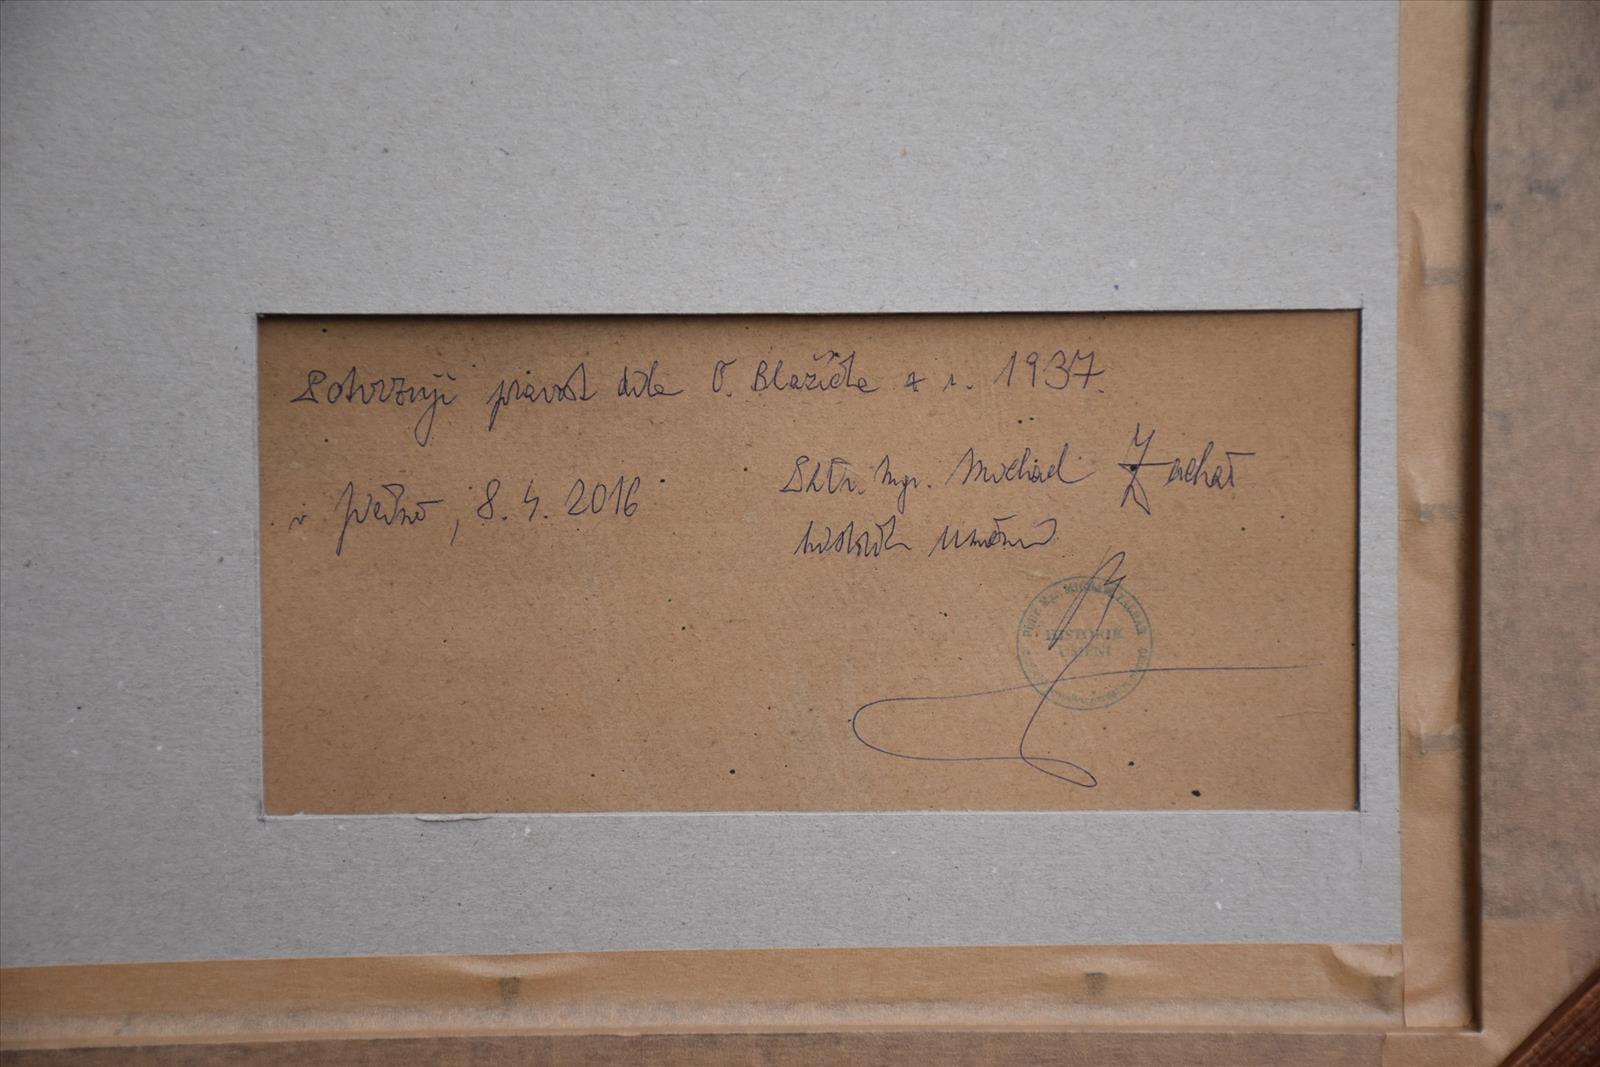 Potvrzuji pravost díla O. Blažíčka z r. 1937.
v , 8. 4. 2016
PhDr. Mgr. Michael Zachař
historik umění
PhDr. Mgr. MICHAEL ZACHAŘ
HISTORIK
UMĚNÍ